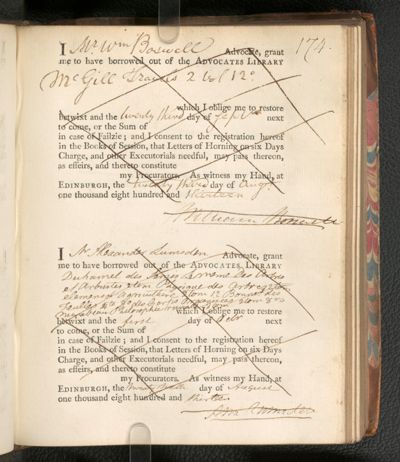 174.
I Mr Wm Boswell Advocate, grant
me to have borrowed out of the ADVOCATES LIBRARY
McGill Travels 2 vol 12o
which I oblige me to restore
betwixt and the twenty third day of next
to come, or the Sum of
in case of Failzie; and I consent to the registration hereof
in the Books of Session, that Letters of Horning on six Days
Charge, and other Executorials needful, may pass thereon,
as effeirs, and thereto constitute
my Procurators. As witness my Hand, at
EDINBURGH, the twenty third day of Augt
one thousand eight hundred and thirteen
William Boswell
I Mr Alexander Lumsden Advocate, grant
me to have borrowed out of the ADVOCATES LIBRARY
Duhamel des
et Arbustes
12
which I oblige me to restore
betwixt and the first day of next
to come, or the Sum of
in case of Failzie; and I consent to the registration hereof
in the Books of Session, that Letters of Horning on six Days
Charge, and other Executorials needful, may pass thereon,
as effeirs, and thereto constitute
my Procurators. As witness my Hand, at
EDINBURGH, the day of August
one thousand eight hundred and thirteen
Lumsden